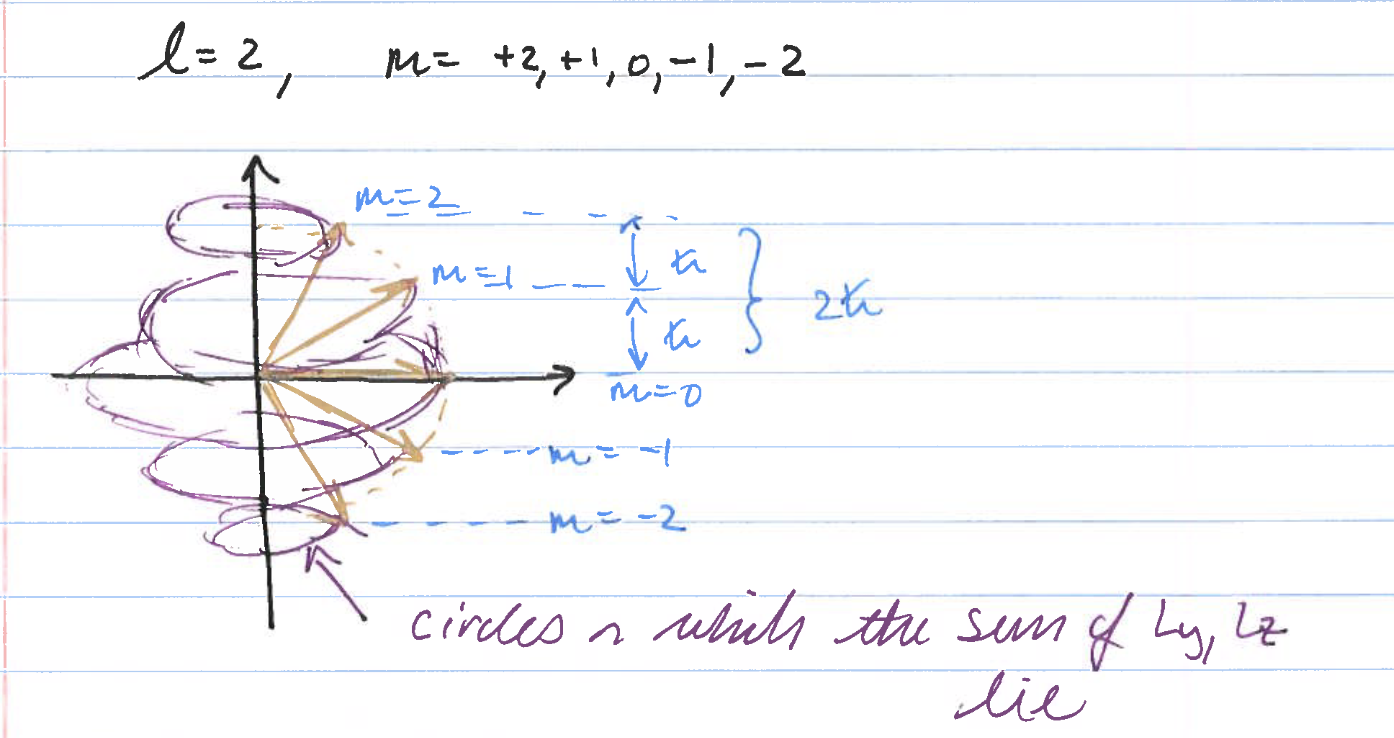 l = 2, m = +2, +1, 0, -1, -2
m=2
m=1
ħ
ħ
2ħ
m=0
m = -1
m = -2
circles n which the sum of Ly, Lz
lie